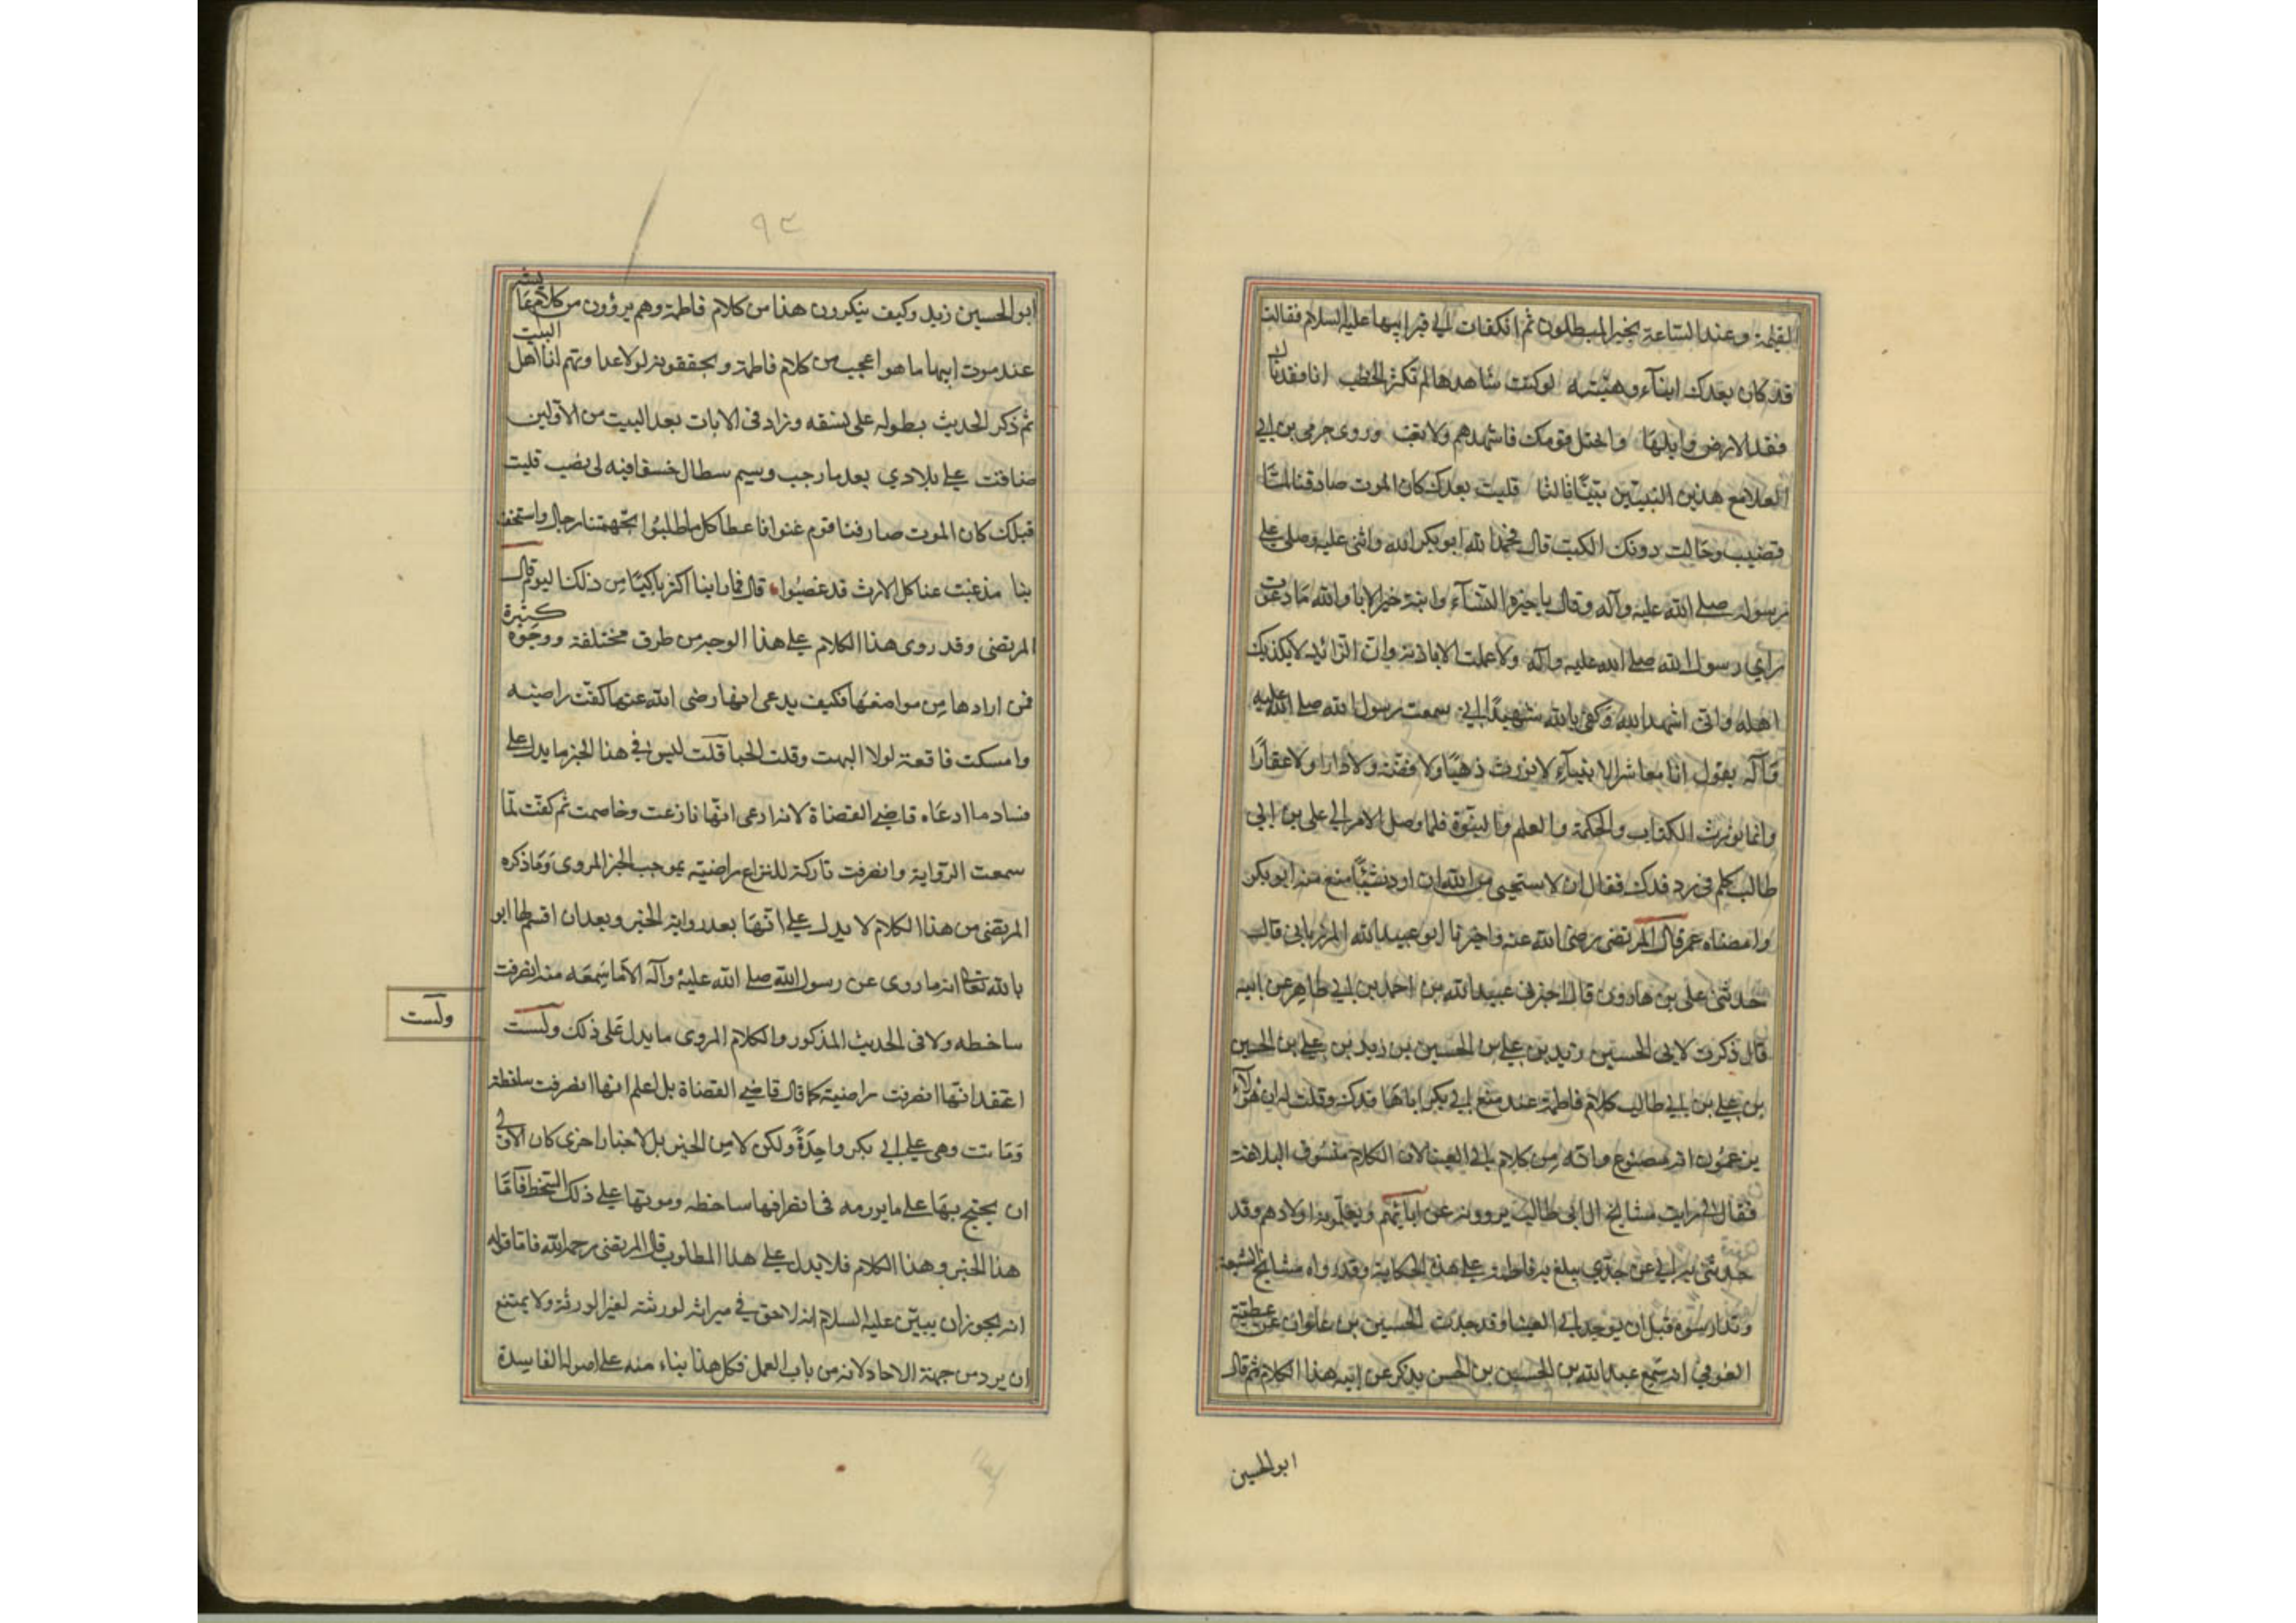 القيمة وعند الساعة يخسر المبطلون ثم انكفات الى قبر ابيها عليه السلام فقالت
قد كان بعدك ابنآء وهينمه لو كنت شاهدها لم تكثر الخطب انا فقدناك
فقد الارض وابلها واختل قومك فاشهدهم ولا تغب وروى حرمى بن ابي
العلا مع هذين البيتين بيتًا ثالثا فليت بعدك كان الموت صادفنا لمّا
قضيت وحالت دونك الكتب قال فحمد الله ابو بكر الله واثنى عليه وصلى على
رسوله صلى الله عليه وآله وقال يا خيرة النسآء وابنة خير الابا والله ما عدوت
راي رسول الله صلى الله عليه وآله ولا عملت الا باذنه وان الرائد لا يكذب
اهله واني اشهد الله وكفى بالله شهيدًا اني سمعت رسول الله صلى الله عليه
وآله يقول انا معاشر الانبيآء لا نورث ذهبًا ولا فضّة ولا دارا ولا عقارًا
وانما نورث الكتاب والحكمة والعلم والنبوّة فلما وصل الامر الى على بن ابى
طالب كلم في رد فدك فقال ان لا ستحيى من الله ان ارد شيًا منع منه ابو بكر
وامضاه عمر قال المرتضى رضى الله عنه واخبرنا ابو عبيد الله المرزبانى قال
حدثنى على بن هارون قال اخبرنى عبيد الله بن احمد بن ابي طاهر عن ابيه
قال ذكرت لابى الحسين زيد بن على بن الحسين بن زيد بن على بن الحسين
بن على بن ابي طالب كلام فاطمة عند منع ابي بكر اياها فدك وقلت له ان هؤلآء
يزعمون انه مصنوع وانه من كلام ابي العينا لان الكلام منسوق البلاغة
فقال لى رايت مشايخ ال ابى طالب يروونه عن آبائهم ويعلمونه اولادهم وقد
حدثنى به ابي عن جدي يبلغ به فاطمة على هذه الحكاية وقد رواه مشايخ الشيعة
وتدارسوه قبل ان يوجد ابي العينا وقد حدث الحسين بن علوان عن عطية
العوفي انه سمع عبد الله بن الحسين بن الحسن يذكر عن ابيه هذا الكلام ثم قال
ابو الحسين
٩٣
ابو الحسين زيد وكيف ينكرون هذا من كلام فاطمة وهم يروون من كلام عايشه
عند موت ابيها ما هو اعجب من كلام فاطمة ويحققونه لولا عداوتهم لنا اهل البيت
ثم ذكر الحديث بطوله على نسقه وزاد فى الابات بعد البيت من الاولين
ضاقت على بلادي بعد ما رحبت وسيم سطال خسفا فيه لى نصب فليت
قبلك كان الموت صادفنا قوم غنوا فا عطا كل ما طلبوا تجهمتنا رجال واستخف
بنا مذ غبت عنا كل الارث قد غصبوا قال فما راينا اكثر باكيًا من ذلك اليوم قال
المرتضى وقد روى هذا الكلام على هذا الوجه من طرق مختلفة ووجوه كثيرة
فمن ارادها من مواضعها فكيف يدعى انها رضى الله عنها كفت راضيه
وامسكت قانعة لولا البهت وقلت الحيا قلت ليس في هذا الخبر ما يدل على
فساد ما ادعاه قاضي القضاة لانه ادعى انها نازعت وخاصمت ثم كفت لما
سمعت الرواية وانصرفت تاركة للنزاع راضية بموجب الخبر المروى وما ذكره
المرتضى من هذا الكلام لا يدل على انها بعد رواية الخبر وبعد ان اقسم لها ابو
بالله تعالى انه ما روى عن رسول الله صلى الله عليه وآله الا ما سمعه منه انصرفت
ساخطه ولا فى الحديث المذكور والكلام المروى ما يدل على ذلك ولست
ولست
اعتقد انها انصرفت راضية كما قال قاضي القضاة بل اعلم انها انصرفت ساخطة
وماتت وهى على ابي بكر واجدةً ولكن لا من الخبر بل لاخبار اخرى كان الاولى
ان يحتج بها على ما يورده فى انصرافها ساخطه وموتها على ذلك السخط فاما
هذا الخبر وهذا الكلام فلا يدل على هذا المطلوب قال المرتضى رحمه الله فاما قوله
انه يجوز ان يبين عليه السلام انه لا حق في ميراثه لورثته لغير الورثة ولا يمتنع
ان يرد من جهة الاحاد لانه من باب العمل فكل هذا بناء منه على اصوله الفاسدة